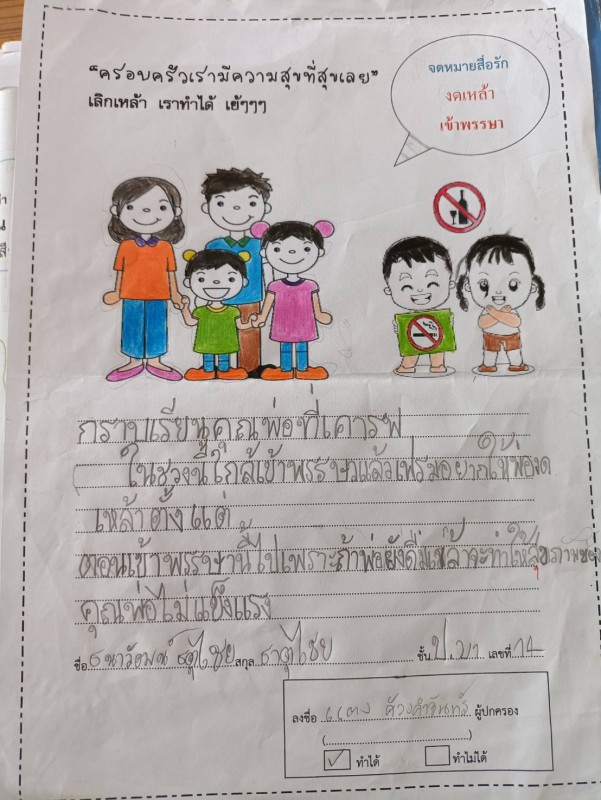 "ครอบครัวเรามีความสุขที่สุขเลย"
เลิกเหล้า เราทำได้ เย้ๆๆๆ
จดหมายสื่อรัก
งดเหล้า
เข้าพรรษา
กราบเรียนคุณพ่อที่เคารพ
ในช่วงนี้ใกล้เข้าพรรษาแล้วเฟรมอยากให้พ่องด
เหล้าตั้งแต่
ตอนเข้าพรรษานี้ไปเพราะถ้าพ่อยังดื่มเหล้าจะทำให้สุขภาพของ
คุณพ่อไม่แข็งแรง
ชื่อ สกุล ธาตุไชย ชั้น ป. เลขที่ 14
ลงชื่อ แตง ผู้ปกครอง
(
)
✓ ทำได้ ทำไม่ได้